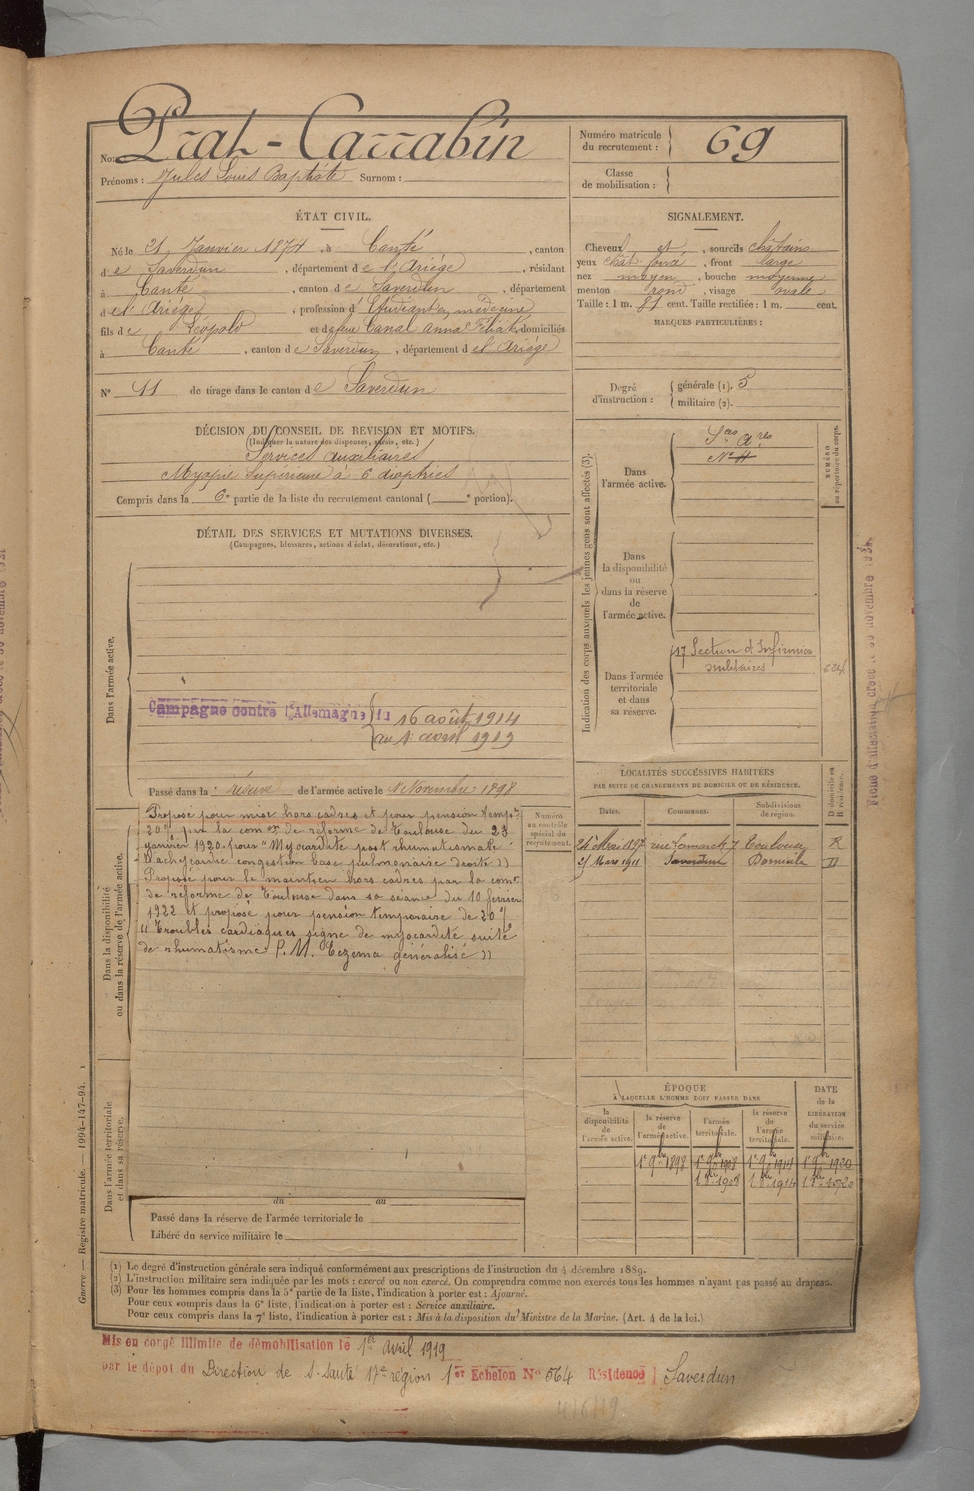 Nom Prat-Carrabin
Prénoms : Jules Louis Baptiste Surnom :
Numéro matricule du recrutement : 69
Classe de mobilisation :
ÉTAT CIVIL.
Né le 21 Janvier 1874, à Canté, canton
de Saverdun, département de l'Ariége, résidant
à Canté, canton de Saverdun, département
de l'Ariége, profession d'Etudiant en médecine
fils de Léopold et de feu Canal Anna domiciliés
à Canté, canton de Saverdun, département de l'Ariége
N° 11 de tirage dans le canton de Saverdun
SIGNALEMENT.
Cheveux et sourcils châtains
yeux chât. foncé, front large
nez moyen, bouche moyenne
menton rond, visage ovale
Taille : 1 m. 81 cent. Taille rectifiée : 1 m. cent.
MARQUES PARTICULIÈRES :
Degré d'instruction : générale (1). 5
militaire (2).
DÉCISION DU CONSEIL DE REVISION ET MOTIFS.
(Indiquer la nature des dispenses, sursis, etc.)
Services auxiliaires
Myopie Supérieure à 6 dioptries
Compris dans la 6e partie de la liste du recrutement cantonal ( e portion).
DÉTAIL DES SERVICES ET MUTATIONS DIVERSES.
(Campagnes, blessures, actions d'éclat, décorations, etc.)
Dans l'armée active.
Campagne contre l'Allemagne du 16 août 1914
au 1 avril 1919
Passé dans la réserve de l'armée active le 1 Novembre 1898
Dans la disponibilité ou dans la réserve de l'armée active.
Proposé pour mise hors cadres et pour pension temp.re
20% par la com.on de réforme de Toulouse du 23
janvier 1920 pour "Myocardite post rhumatismale
tachycardie congestion base pulmonaire droite"
Proposé pour le maintien hors cadres par la com.on
de réforme de Toulouse dans sa séance du 10 février
1922 et proposé pour pension temporaire de 20%
"Troubles cardiaques signe de myocardite suite
de rhumatisme P.M. Eczema généralisé"
Numéro au contrôle spécial du recrutement.
Dans l'armée territoriale et dans sa réserve.
du au
Passé dans la réserve de l'armée territoriale le
Libéré du service militaire le
Indication des corps auxquels les jeunes gens sont affectés (3).
NUMÉRO au répertoire du corps.
Dans l'armée active.
Ses Ares
Dans la disponibilité ou dans la réserve de l'armée active.
Dans l'armée territoriale et dans sa réserve.
17 Section d'Infirmiers
militaires
LOCALITÉS SUCCESSIVES HABITÉES
PAR SUITE DE CHANGEMENTS DE DOMICILE OU DE RÉSIDENCE.
Dates. Communes. Subdivisions de région. D domicile ou R résidence.
rue Lamarck 7 Toulouse R
25 Mars 1911 Saverdun D
ÉPOQUE
À LAQUELLE L'HOMME DOIT PASSER DANS
la disponibilité de l'armée active.
la réserve de l'armée active.
l'armée territoriale.
la réserve de l'armée territoriale.
DATE de la LIBÉRATION du service militaire.
1er 9bre 1898 1er 9bre 1908 1er 9bre 1914 1er 9bre 1920
(1) Le degré d'instruction générale sera indiqué conformément aux prescriptions de l'instruction du 4 décembre 1889.
(2) L'instruction militaire sera indiquée par les mots : exercé ou non exercé. On comprendra comme non exercés tous les hommes n'ayant pas passé au drapeau.
(3) Pour les hommes compris dans la 5e partie de la liste, l'indication à porter est : Ajourné.
Pour ceux compris dans la 6e liste, l'indication à porter est : Service auxiliaire.
Pour ceux compris dans la 7e liste, l'indication à porter est : Mis à la disposition du Ministre de la Marine. (Art. 4 de la loi.)
Guerre — Registre matricule. — 1994-147-94.
Mis en congé illimité de démobilisation le 1er avril 1919
par le dépôt du Direction de S. Santé 17e région 1er Echelon N° 564 Résidence Saverdun